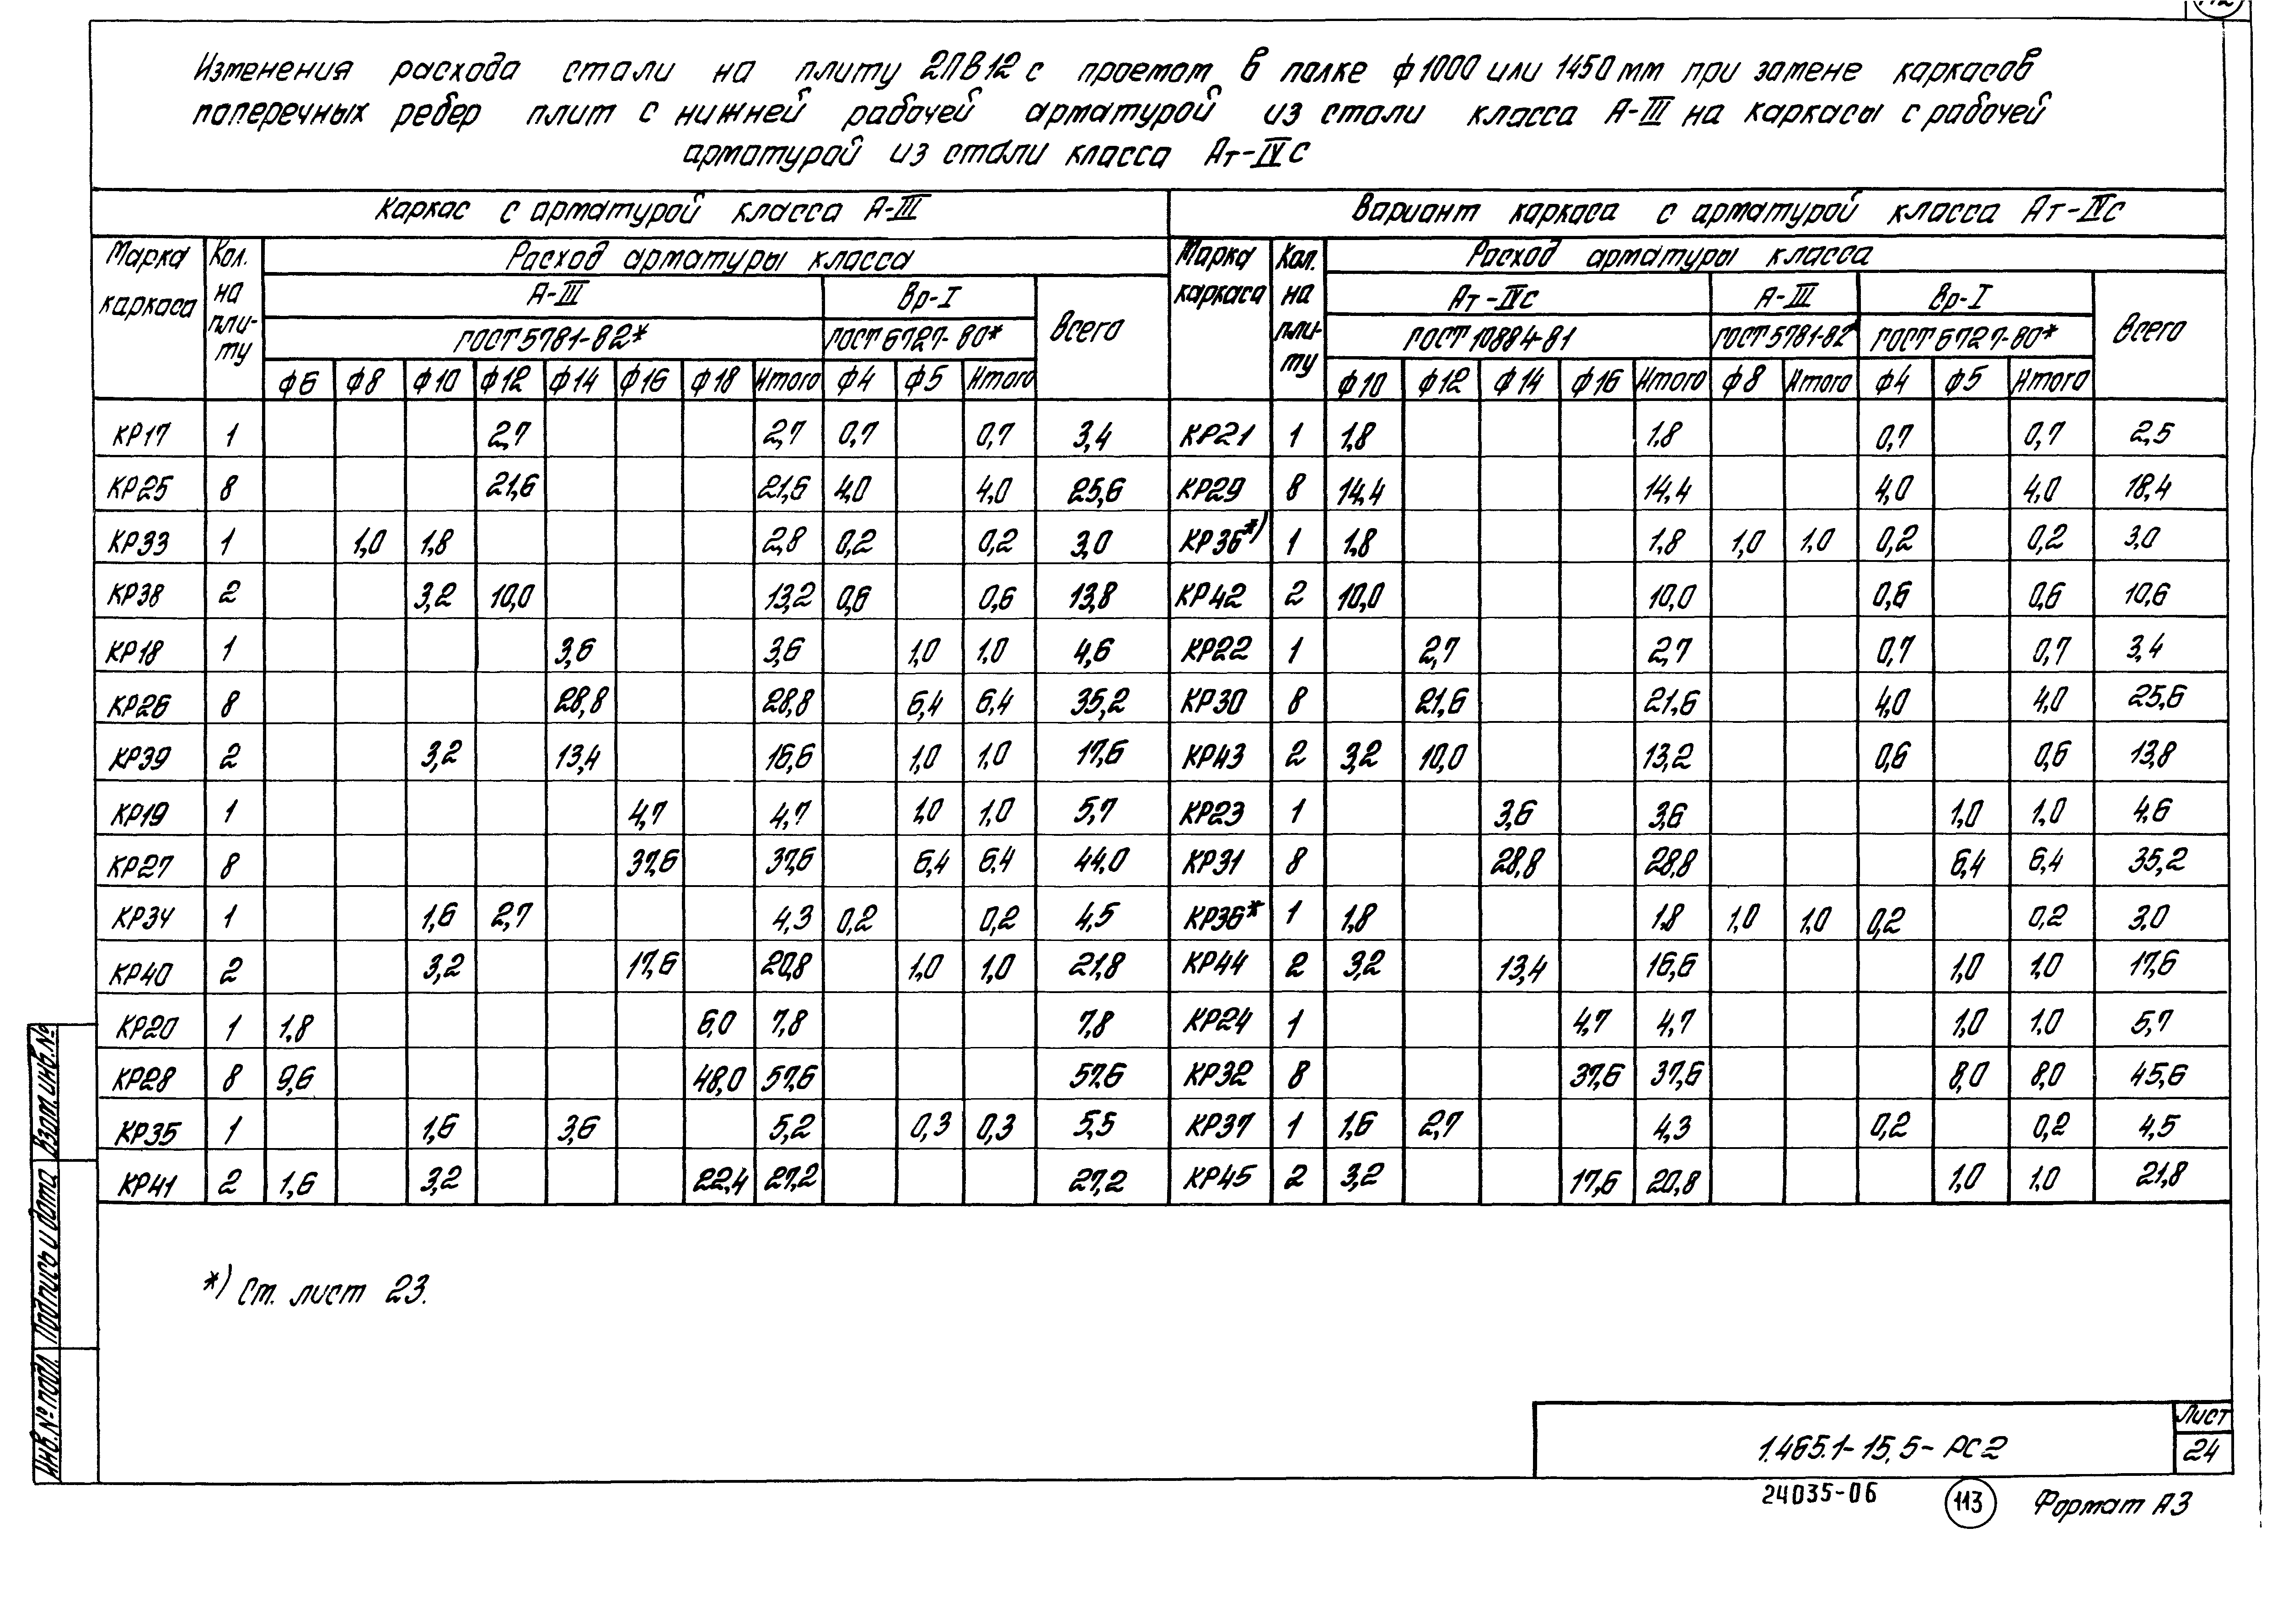 Изменения расхода стали на плиту 2ПВ12 с проемом в полке ф1000 или 1450 мм при замене каркасов
поперечных ребер плит с нижней рабочей арматурой из стали класса А-III на каркасы с рабочей
арматурой из стали класса Ат-IVС
Каркас с арматурой класса А-III | Вариант каркаса с арматурой класса Ат-IVС
Марка каркаса | Кол. на пли-ту | Расход арматуры класса | Марка каркаса | Кол. на пли-ту | Расход арматуры класса
А-III | Вр-I | Всего | Ат-IVС | А-III | Вр-I | Всего
ГОСТ 5781-82* | ГОСТ 6727-80* | ГОСТ 10884-81 | ГОСТ 5781-82* | ГОСТ 6727-80*
ф6 | ф8 | ф10 | ф12 | ф14 | ф16 | ф18 | Итого | ф4 | ф5 | Итого | ф10 | ф12 | ф14 | ф16 | Итого | ф8 | Итого | ф4 | ф5 | Итого
КР17 1 2,7 2,7 0,7 0,7 3,4 КР21 1 1,8 1,8 0,7 0,7 2,5
КР25 8 21,6 21,6 4,0 4,0 25,6 КР29 8 14,4 14,4 4,0 4,0 18,4
КР33 1 1,0 1,8 2,8 0,2 0,2 3,0 КР36*) 1 1,8 1,8 1,0 1,0 0,2 0,2 3,0
КР38 2 3,2 10,0 13,2 0,6 0,6 13,8 КР42 2 10,0 10,0 0,6 0,6 10,6
КР18 1 3,6 3,6 1,0 1,0 4,6 КР22 1 2,7 2,7 0,7 0,7 3,4
КР26 8 28,8 28,8 6,4 6,4 35,2 КР30 8 21,6 21,6 4,0 4,0 25,6
КР39 2 3,2 13,4 16,6 1,0 1,0 17,6 КР43 2 3,2 10,0 13,2 0,6 0,6 13,8
КР19 1 4,7 4,7 1,0 1,0 5,7 КР23 1 3,6 3,6 1,0 1,0 4,6
КР27 8 37,6 37,6 6,4 6,4 44,0 КР31 8 28,8 28,8 6,4 6,4 35,2
КР34 1 1,6 2,7 4,3 0,2 0,2 4,5 КР36* 1 1,8 1,8 1,0 1,0 0,2 0,2 3,0
КР40 2 3,2 17,6 20,8 1,0 1,0 21,8 КР44 2 3,2 13,4 16,6 1,0 1,0 17,6
КР20 1 1,8 6,0 7,8 7,8 КР24 1 4,7 4,7 1,0 1,0 5,7
КР28 8 9,6 48,0 57,6 57,6 КР32 8 37,6 37,6 8,0 8,0 45,6
КР35 1 1,6 3,6 5,2 0,3 0,3 5,5 КР37 1 1,6 2,7 4,3 0,2 0,2 4,5
КР41 2 1,6 3,2 22,4 27,2 27,2 КР45 2 3,2 17,6 20,8 1,0 1,0 21,8
*) См. лист 23.
Инв.№ подл. Подпись и дата Взам.инв.№
1.465.1-15,5-РС2
Лист
24
24035-06
113
Формат А3